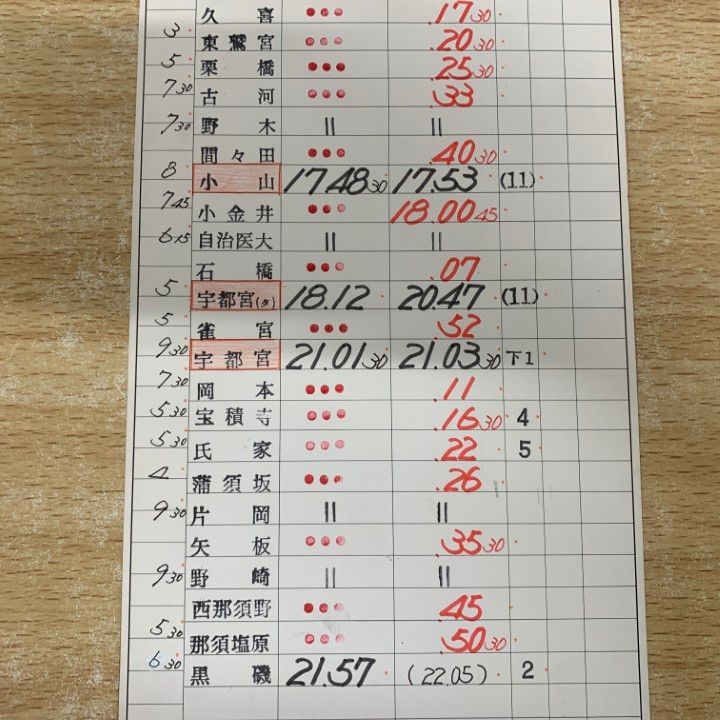 久喜 ••• .17 30
3
東鷲宮 ••• .20 30
5
栗橋 ••• .25 30
7 30
古河 ••• .33
7 30
野木 || ||
間々田 ••• .40 30
8
小山 17.48 30 17.53 (11)
7 45
小金井 ••• 18.00 45
6 15
自治医大 || ||
石橋 ••• .07
5
宇都宮(タ) 18.12 20.47 (11)
5
雀宮 ••• .52
9 30
宇都宮 21.01 30 21.03 30 下1
7 30
岡本 ••• .11
5 30
宝積寺 ••• .16 30 4
5 30
氏家 ••• .22 5
4
蒲須坂 ••• .26
9 30
片岡 || ||
矢板 ••• .35 30
9 30
野崎 || ||
西那須野 ••• .45
5 30
那須塩原 ••• .50 30
6 30
黒磯 21.57 (22.05) 2